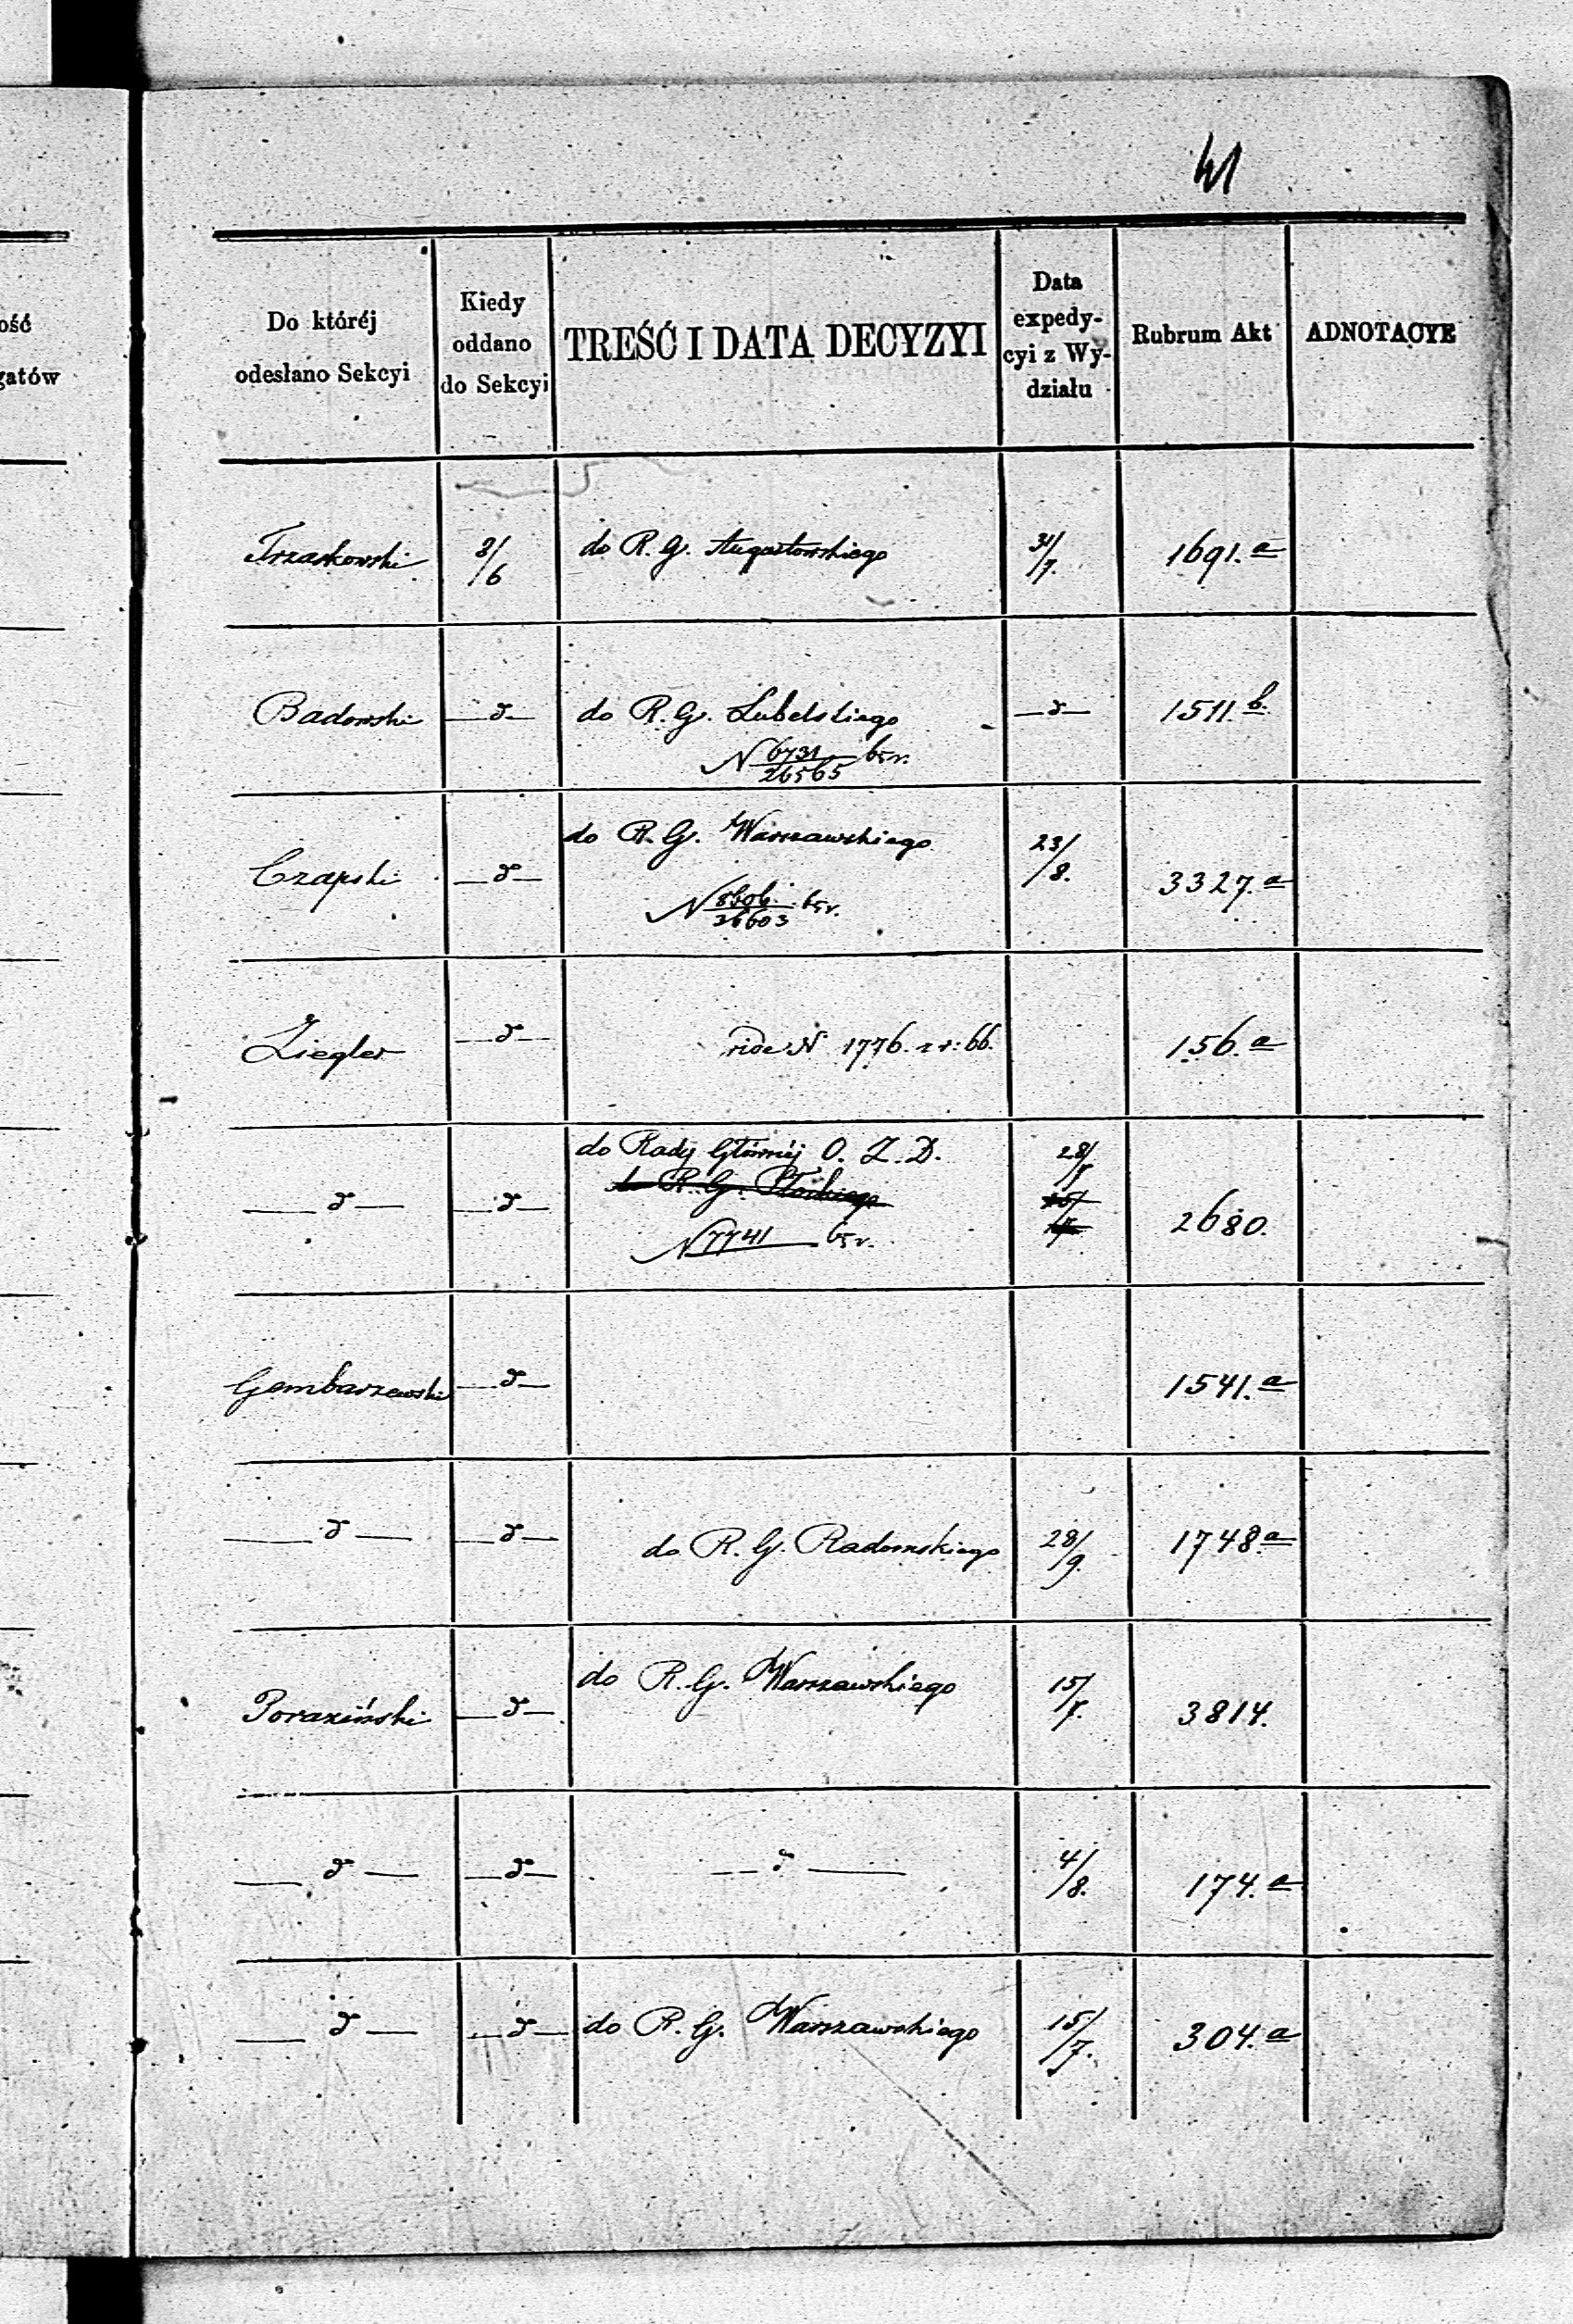 41
ość
gatów
Do któréj
odesłano Sekcyi
Kiedy
oddano
do Sekcyi
TREŚĆ I DATA DECYZYI
Data
expedy-
cyi z Wy-
działu
Rubrum Akt
ADNOTACYE
Trzaskowski 8/6 do R. G. Augustowskiego 31/7. 1691.a
Badowski —d— do R. G. Lubelskiego —d— 1511.b.
N 6731/26565 65 r.
Czapski —d— do R. G. Warszawskiego 23/8. 3327.a
N 8606/36603 65 r.
Ziegler —d— vide N 1776. z r: 66. 156.a
—d— —d— do Rady Głównéj O. Z. D. 28/7 2680.
do R. G. Płockiego
N 7741 65 r.
Gembarzewski —d— 1541.a
—d— —d— do R. G. Radomskiego 28/9. 1748.a
Poraziński —d— do R. G. Warszawskiego 15/7. 3814.
—d— —d— —d— 4/8. 174.a
—d— —d— do R. G. Warszawskiego 15/7. 304.a